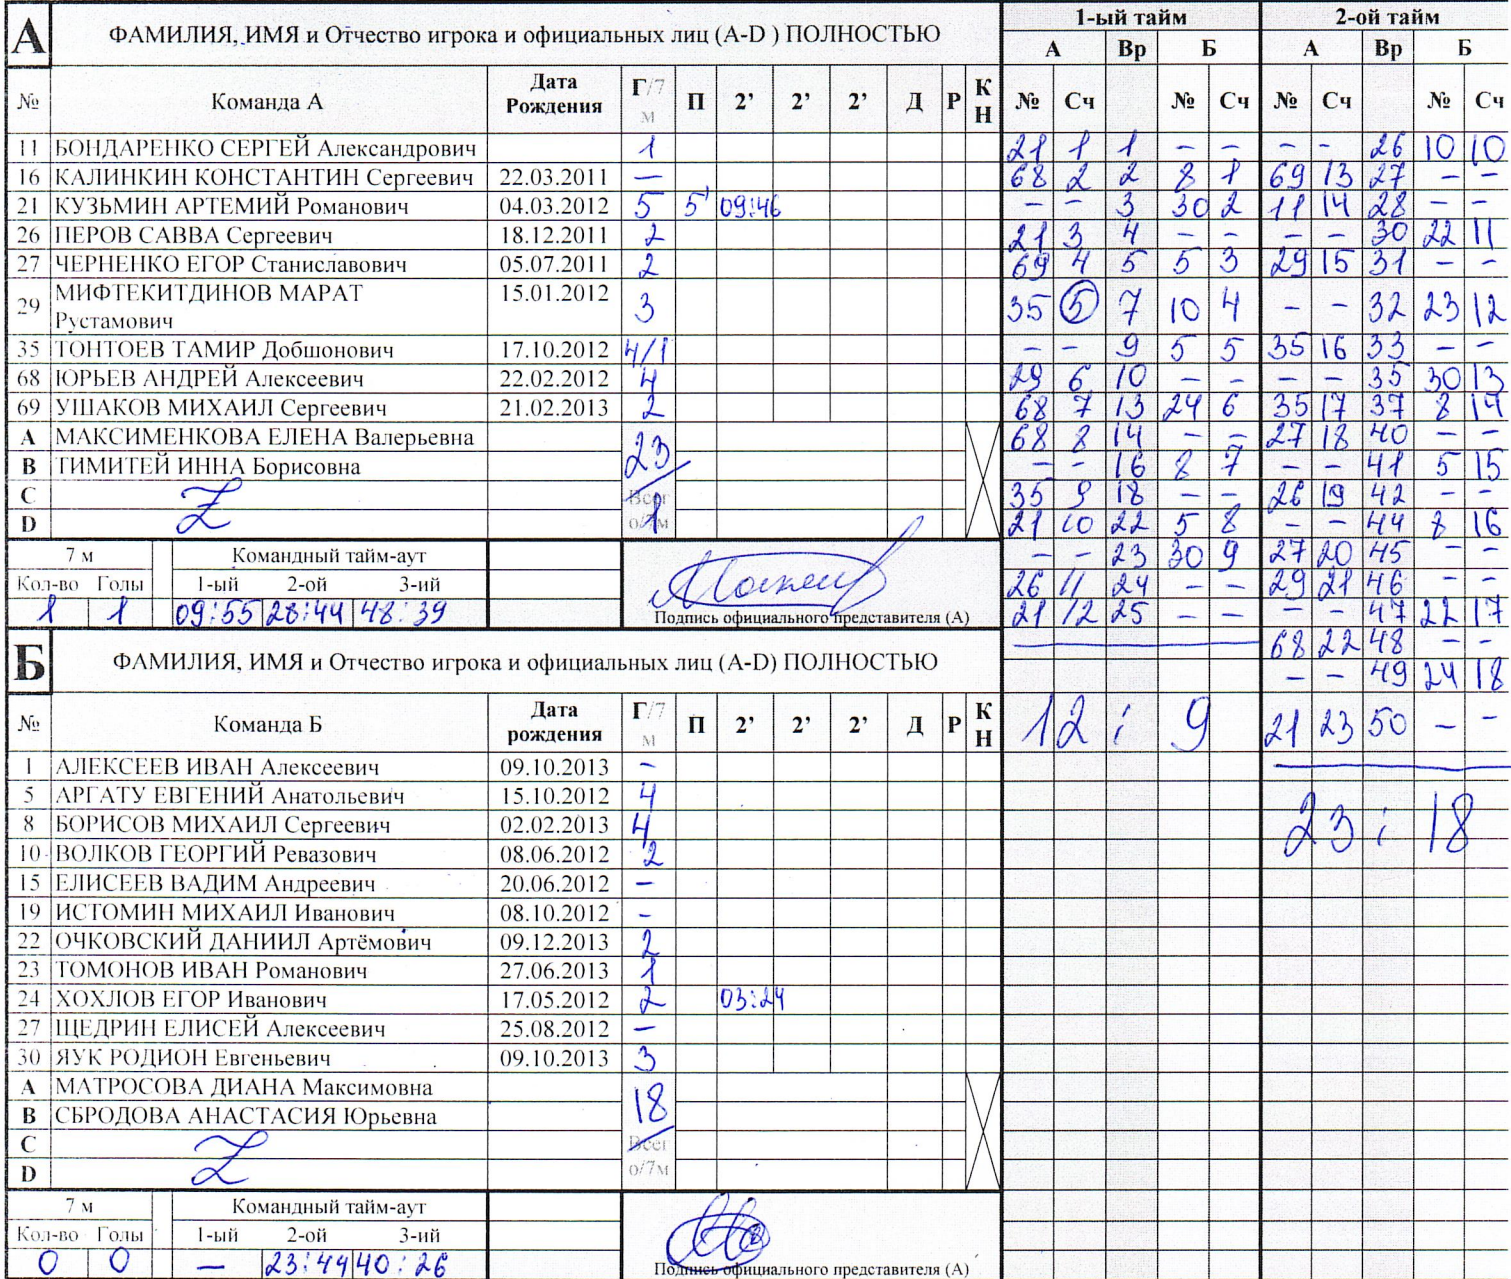 А ФАМИЛИЯ, ИМЯ и Отчество игрока и официальных лиц (A-D ) ПОЛНОСТЬЮ
№ Команда А Дата Рождения Г/7 м П 2’ 2’ 2’ Д Р К Н
11 БОНДАРЕНКО СЕРГЕЙ Александрович 1
16 КАЛИНКИН КОНСТАНТИН Сергеевич 22.03.2011 —
21 КУЗЬМИН АРТЕМИЙ Романович 04.03.2012 5 5' 09:46
26 ПЕРОВ САВВА Сергеевич 18.12.2011 2
27 ЧЕРНЕНКО ЕГОР Станиславович 05.07.2011 2
29 МИФТЕКИТДИНОВ МАРАТ Рустамович 15.01.2012 3
35 ТОНТОЕВ ТАМИР Добшонович 17.10.2012 4/1
68 ЮРЬЕВ АНДРЕЙ Алексеевич 22.02.2012 4
69 УШАКОВ МИХАИЛ Сергеевич 21.02.2013 2
A МАКСИМЕНКОВА ЕЛЕНА Валерьевна
B ТИМИТЕЙ ИННА Борисовна 23/
C Z Всег
D о/7м 1
7 м Командный тайм-аут
Кол-во Голы 1-ый 2-ой 3-ий
1 1 09:55 28:44 48:39
Подпись официального представителя (А)
Б ФАМИЛИЯ, ИМЯ и Отчество игрока и официальных лиц (A-D) ПОЛНОСТЬЮ
№ Команда Б Дата рождения Г/7 м П 2’ 2’ 2’ Д Р К Н
1 АЛЕКСЕЕВ ИВАН Алексеевич 09.10.2013 -
5 АРГАТУ ЕВГЕНИЙ Анатольевич 15.10.2012 4
8 БОРИСОВ МИХАИЛ Сергеевич 02.02.2013 4
10 ВОЛКОВ ГЕОРГИЙ Ревазович 08.06.2012 2
15 ЕЛИСЕЕВ ВАДИМ Андреевич 20.06.2012 -
19 ИСТОМИН МИХАИЛ Иванович 08.10.2012 -
22 ОЧКОВСКИЙ ДАНИИЛ Артёмович 09.12.2013 2
23 ТОМОНОВ ИВАН Романович 27.06.2013 1
24 ХОХЛОВ ЕГОР Иванович 17.05.2012 2 03:24
27 ЩЕДРИН ЕЛИСЕЙ Алексеевич 25.08.2012 —
30 ЯУК РОДИОН Евгеньевич 09.10.2013 3
A МАТРОСОВА ДИАНА Максимовна
B СБРОДОВА АНАСТАСИЯ Юрьевна 18/
C Z Всег
D о/7м
7 м Командный тайм-аут
Кол-во Голы 1-ый 2-ой 3-ий
0 0 — 23:44 40:26
Подпись официального представителя (А)
1-ый тайм 2-ой тайм
А Вр Б А Вр Б
№ Сч № Сч № Сч № Сч
21 1 1 - - - - 26 10 10
68 2 2 8 1 69 13 27 - -
- - 3 30 2 11 14 28 - -
21 3 4 - - - - 30 22 11
69 4 5 5 3 29 15 31 - -
35 5 7 10 4 - - 32 23 12
- - 9 5 5 35 16 33 - -
29 6 10 - - - - 35 30 13
68 7 13 24 6 35 17 37 8 14
68 8 14 - - 27 18 40 - -
- - 16 8 7 - - 41 5 15
35 9 18 - - 26 19 42 - -
21 10 22 5 8 - - 44 8 16
- - 23 30 9 27 20 45 - -
26 11 24 - - 29 21 46 - -
21 12 25 - - - - 47 22 17
68 22 48 - -
- - 49 24 18
12 : 9 21 23 50 - -
23 : 18